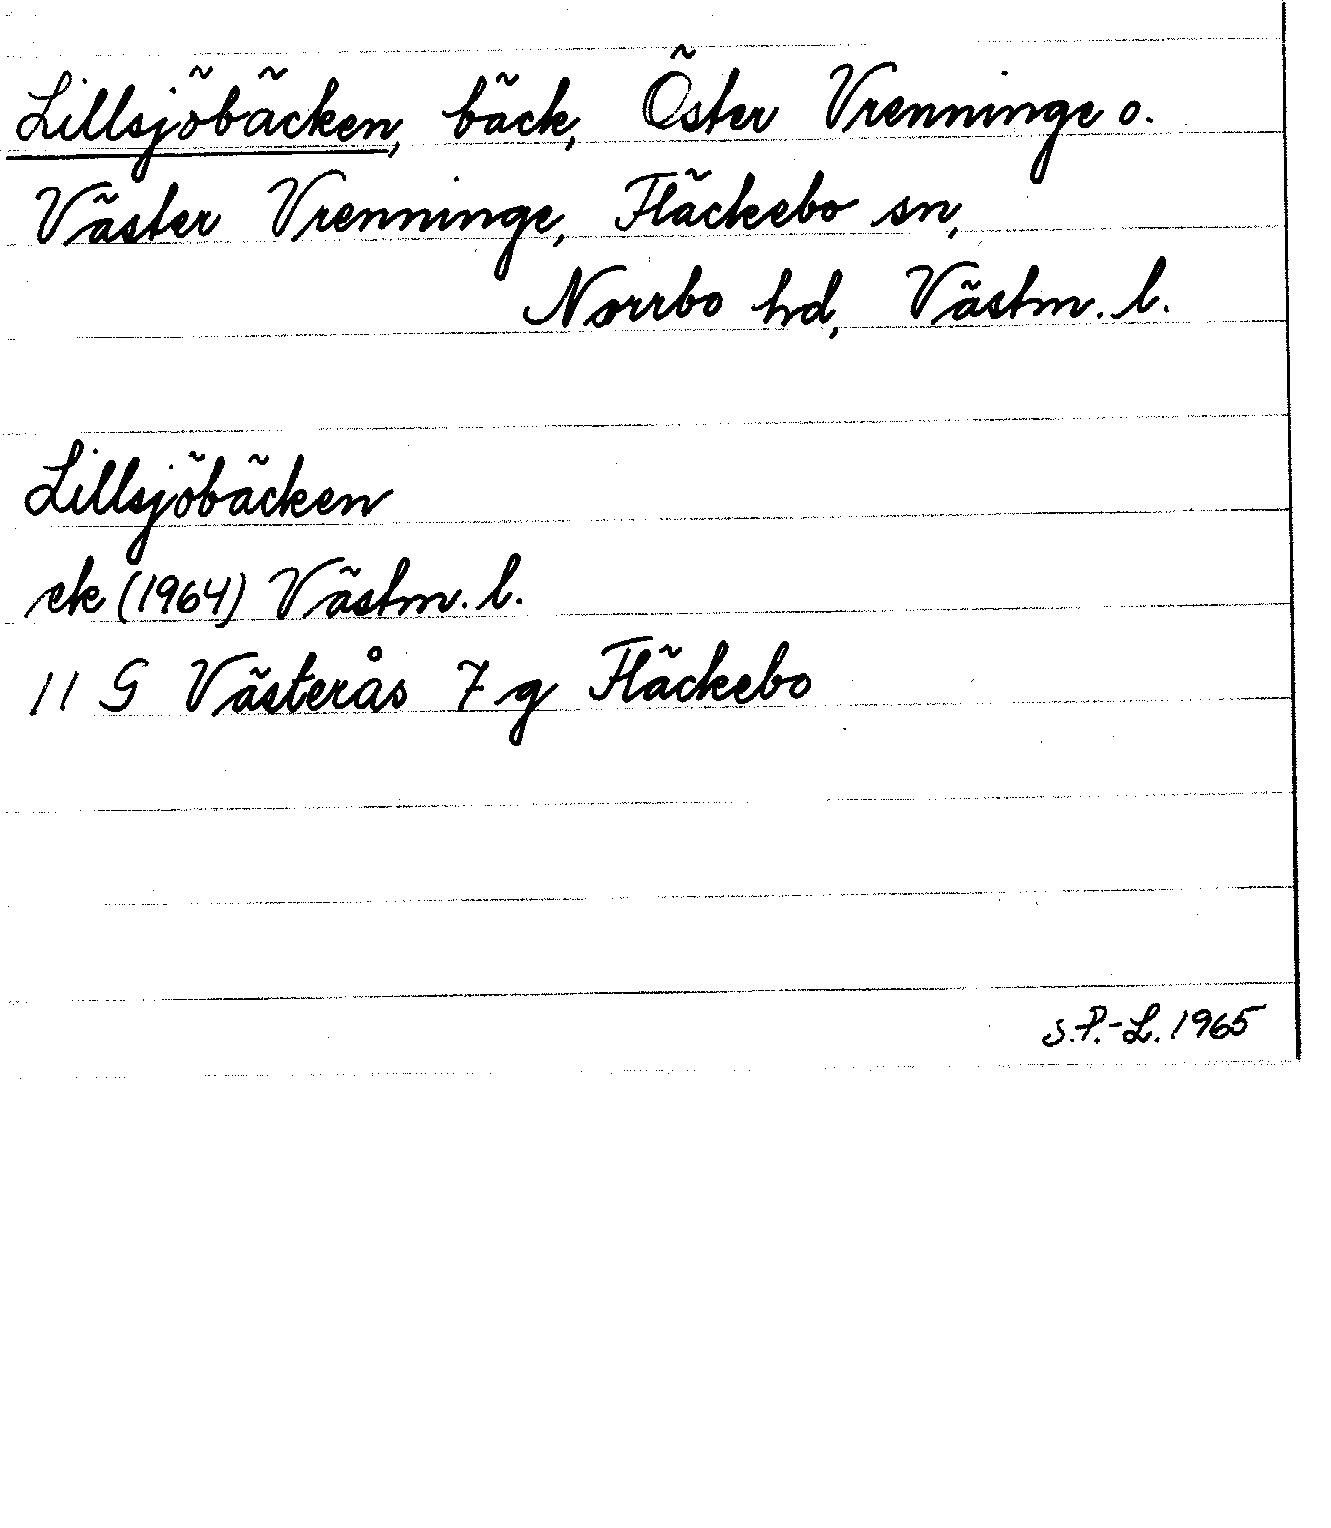 Lillsjöbäcken, bäck, Öster Vrenninge o.
Väster Vrenninge, Fläckebo sn,
Norrbo hd, Västm. l.
Lillsjöbäcken
ek (1964) Västm. l.
11 G Västerås 7 g Fläckebo
S.P.-L. 1965